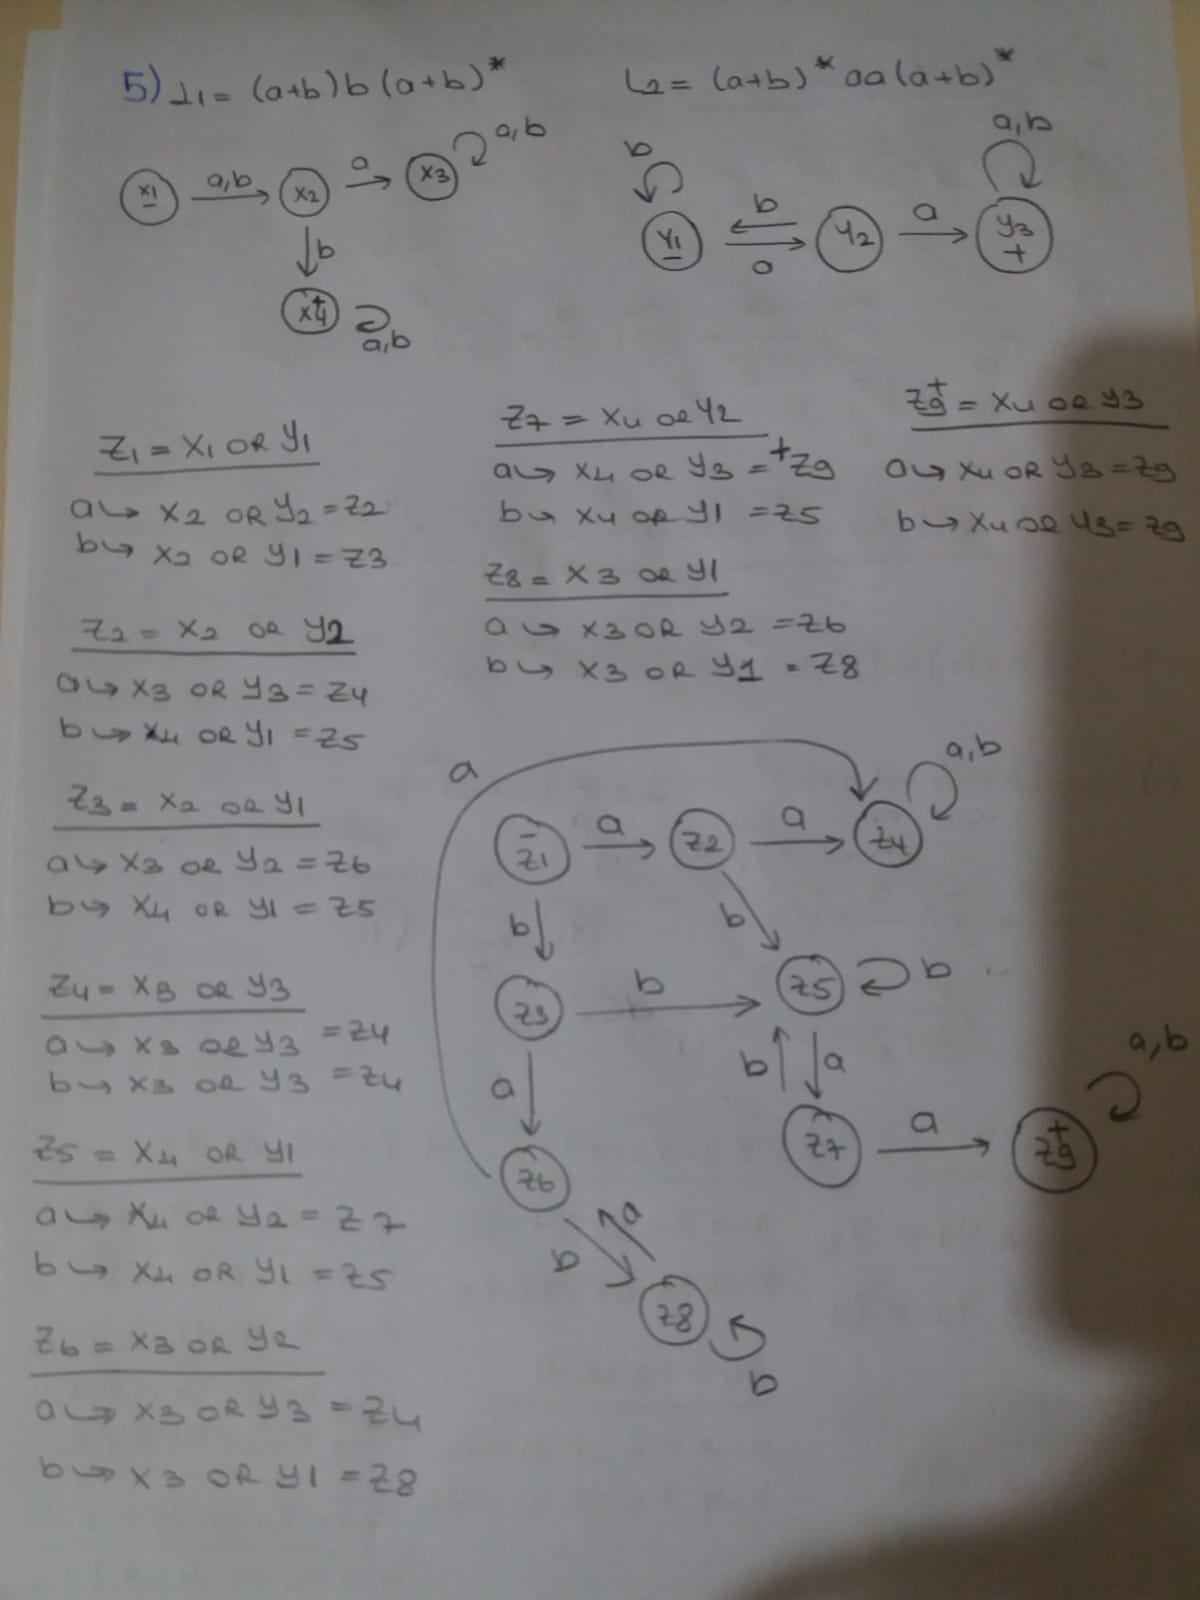 5) L1 = (a+b)b(a+b)*
L2 = (a+b)*aa(a+b)*
x1 a,b x2 a x3 a,b
b
x4 + a,b
b y1 b a y2 a y3 + a,b
Z1 = X1 OR Y1
a↪ X2 OR Y2 = Z2
b↪ X2 OR Y1 = Z3
Z2 = X2 OR Y2
a↪ X3 OR Y3 = Z4
b↪ X4 OR Y1 = Z5
Z3 = X2 OR Y1
a↪ X3 OR Y2 = Z6
b↪ X4 OR Y1 = Z5
Z4 = X3 OR Y3
a↪ X3 OR Y3 = Z4
b↪ X3 OR Y3 = Z4
Z5 = X4 OR Y1
a↪ X4 OR Y2 = Z7
b↪ X4 OR Y1 = Z5
Z6 = X3 OR Y2
a↪ X3 OR Y3 = Z4
b↪ X3 OR Y1 = Z8
Z7 = X4 OR Y2
a↪ X4 OR Y3 = +Z9
b↪ X4 OR Y1 = Z5
Z8 = X3 OR Y1
a↪ X3 OR Y2 = Z6
b↪ X3 OR Y1 = Z8
Z9+ = X4 OR Y3
a↪ X4 OR Y3 = Z9
b↪ X4 OR Y3 = Z9
a
a,b
- Z1 a Z2 a Z4
b b
Z3 b Z5 b
a b a a,b
Z6 Z7 a Z9 +
b a
Z8
b